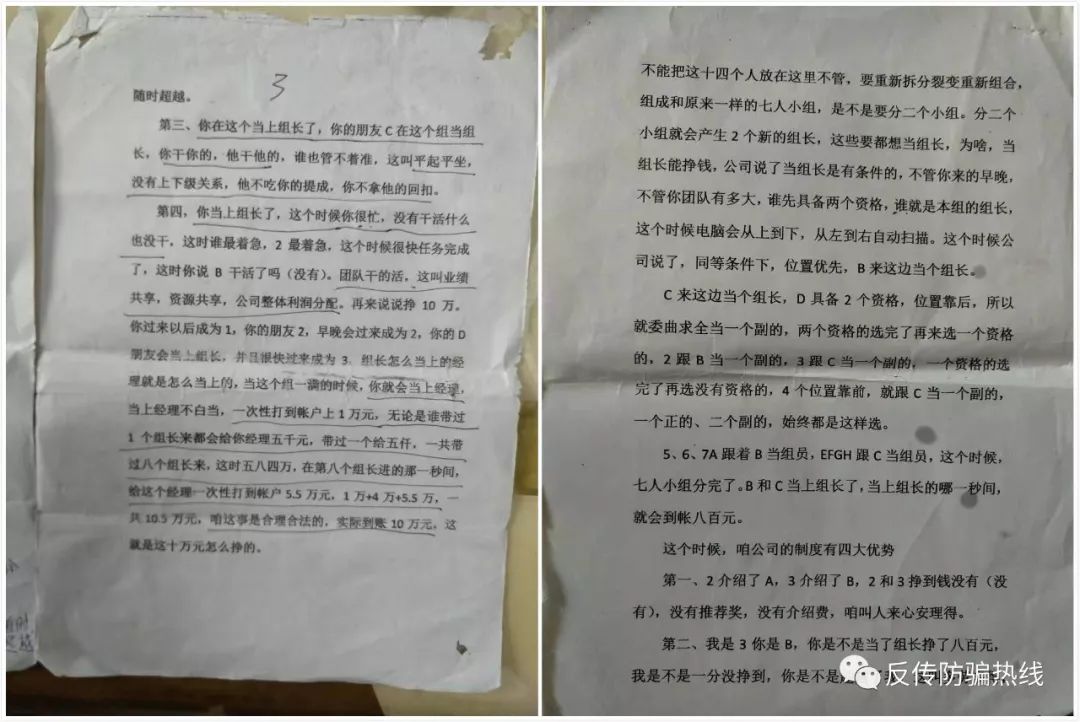 3
随时超越。
第三、你在这个当上组长了，你的朋友 C 在这个组当组
长，你干你的，他干他的，谁也管不着准，这叫平起平坐，
没有上下级关系，他不吃你的提成，你不拿他的回扣。
第四，你当上组长了，这个时候你很忙，没有干活什么
也没干，这时谁最着急，2 最着急，这个时候很快任务完成
了，这时你说 B 干活了吗（没有）。团队干的活，这叫业绩
共享，资源共享，公司整体利润分配。再来说说挣 10 万。
你过来以后成为 1，你的朋友 2，早晚会过来成为 2，你的 D
朋友会当上组长，并且很快过来成为 3．组长怎么当上的经
理就是怎么当上的，当这个组一满的时候，你就会当上经理，
当上经理不白当，一次性打到帐户上 1 万元，无论是谁带过
1 个组长来都会给你经理五千元，带过一个给五仟，一共带
过八个组长来，这时五八四万，在第八个组长进的那一秒间，
给这个经理一次性打到帐户 5.5 万元，1 万+4 万+5.5 万，一
共 10.5 万元，咱这事是合理合法的，实际到账 10 万元，这
就是这十万元怎么挣的。
不能把这十四个人放在这里不管，要重新拆分裂变重新组合，
组成和原来一样的七人小组，是不是要分二个小组。分二个
小组就会产生 2 个新的组长，这些要都想当组长，为啥，当
组长能挣钱，公司说了当组长是有条件的，不管你来的早晚，
不管你团队有多大，谁先具备两个资格，谁就是本组的组长，
这个时候电脑会从上到下，从左到右自动扫描。这个时候公
司说了，同等条件下，位置优先，B 来这边当个组长。
C 来这边当个组长，D 具备 2 个资格，位置靠后，所以
就委曲求全当一个副的，两个资格的选完了再来选一个资格
的，2 跟 B 当一个副的，3 跟 C 当一个副的，一个资格的选
完了再选没有资格的，4 个位置靠前，就跟 C 当一个副的，
一个正的、二个副的，始终都是这样选。
5、6、7A 跟着 B 当组员，EFGH 跟 C 当组员，这个时候，
七人小组分完了。B 和 C 当上组长了，当上组长的哪一秒间，
就会到帐八百元。
这个时候，咱公司的制度有四大优势
第一、2 介绍了 A，3 介绍了 B，2 和 3 挣到钱没有（没
有），没有推荐奖，没有介绍费，咱叫人来心安理得。
第二、我是 3 你是 B，你是不是当了组长挣了八百元，
我是不是一分没挣到，你是不是
反传防骗热线